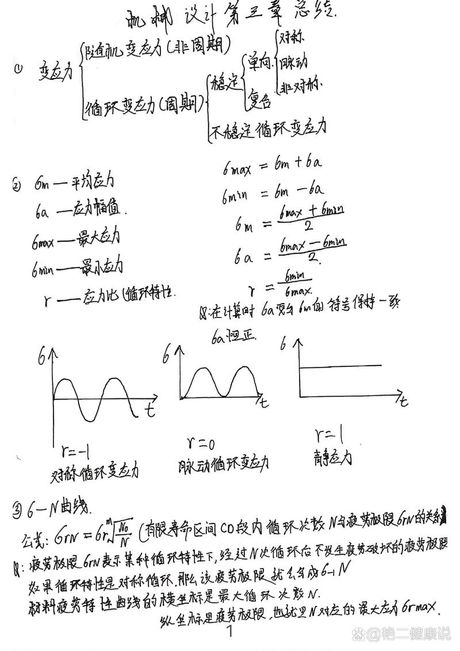 机械设计第三章总结.
① 变应力 随机变应力(非周期)
循环变应力(周期) 稳定 单向 对称
脉动
非对称.
复合
不稳定循环变应力
② 6m — 平均应力
6a — 应力幅值.
6max — 最大应力
6min — 最小应力
r — 应力比(循环特性
6max = 6m + 6a
6min = 6m - 6a
6m = (6max + 6min)/2
6a = (6max - 6min)/2.
r = 6min/6max.
在计算时 6a 6m 符号保持一致
6a恒正.
6 t 6 t 6 t
r=-1 r=0 r=1
对称循环变应力 脉动循环变应力 静应力
③ 6-N曲线.
公式: 6rN = 6r m√(N0/N) (有限寿命区间CD段内循环次数N与疲劳极限6rN的关系)
疲劳极限6rN表示某种循环特性下,经过N次循环后不发生疲劳破坏的疲劳极限
如果循环特性是对称循环,那么该疲劳极限就会写成6-1N
材料疲劳特性曲线的横坐标是最大循环次数N.
纵坐标是疲劳极限,也就是N对应的最大应力6rmax.
1
@艳二健康说